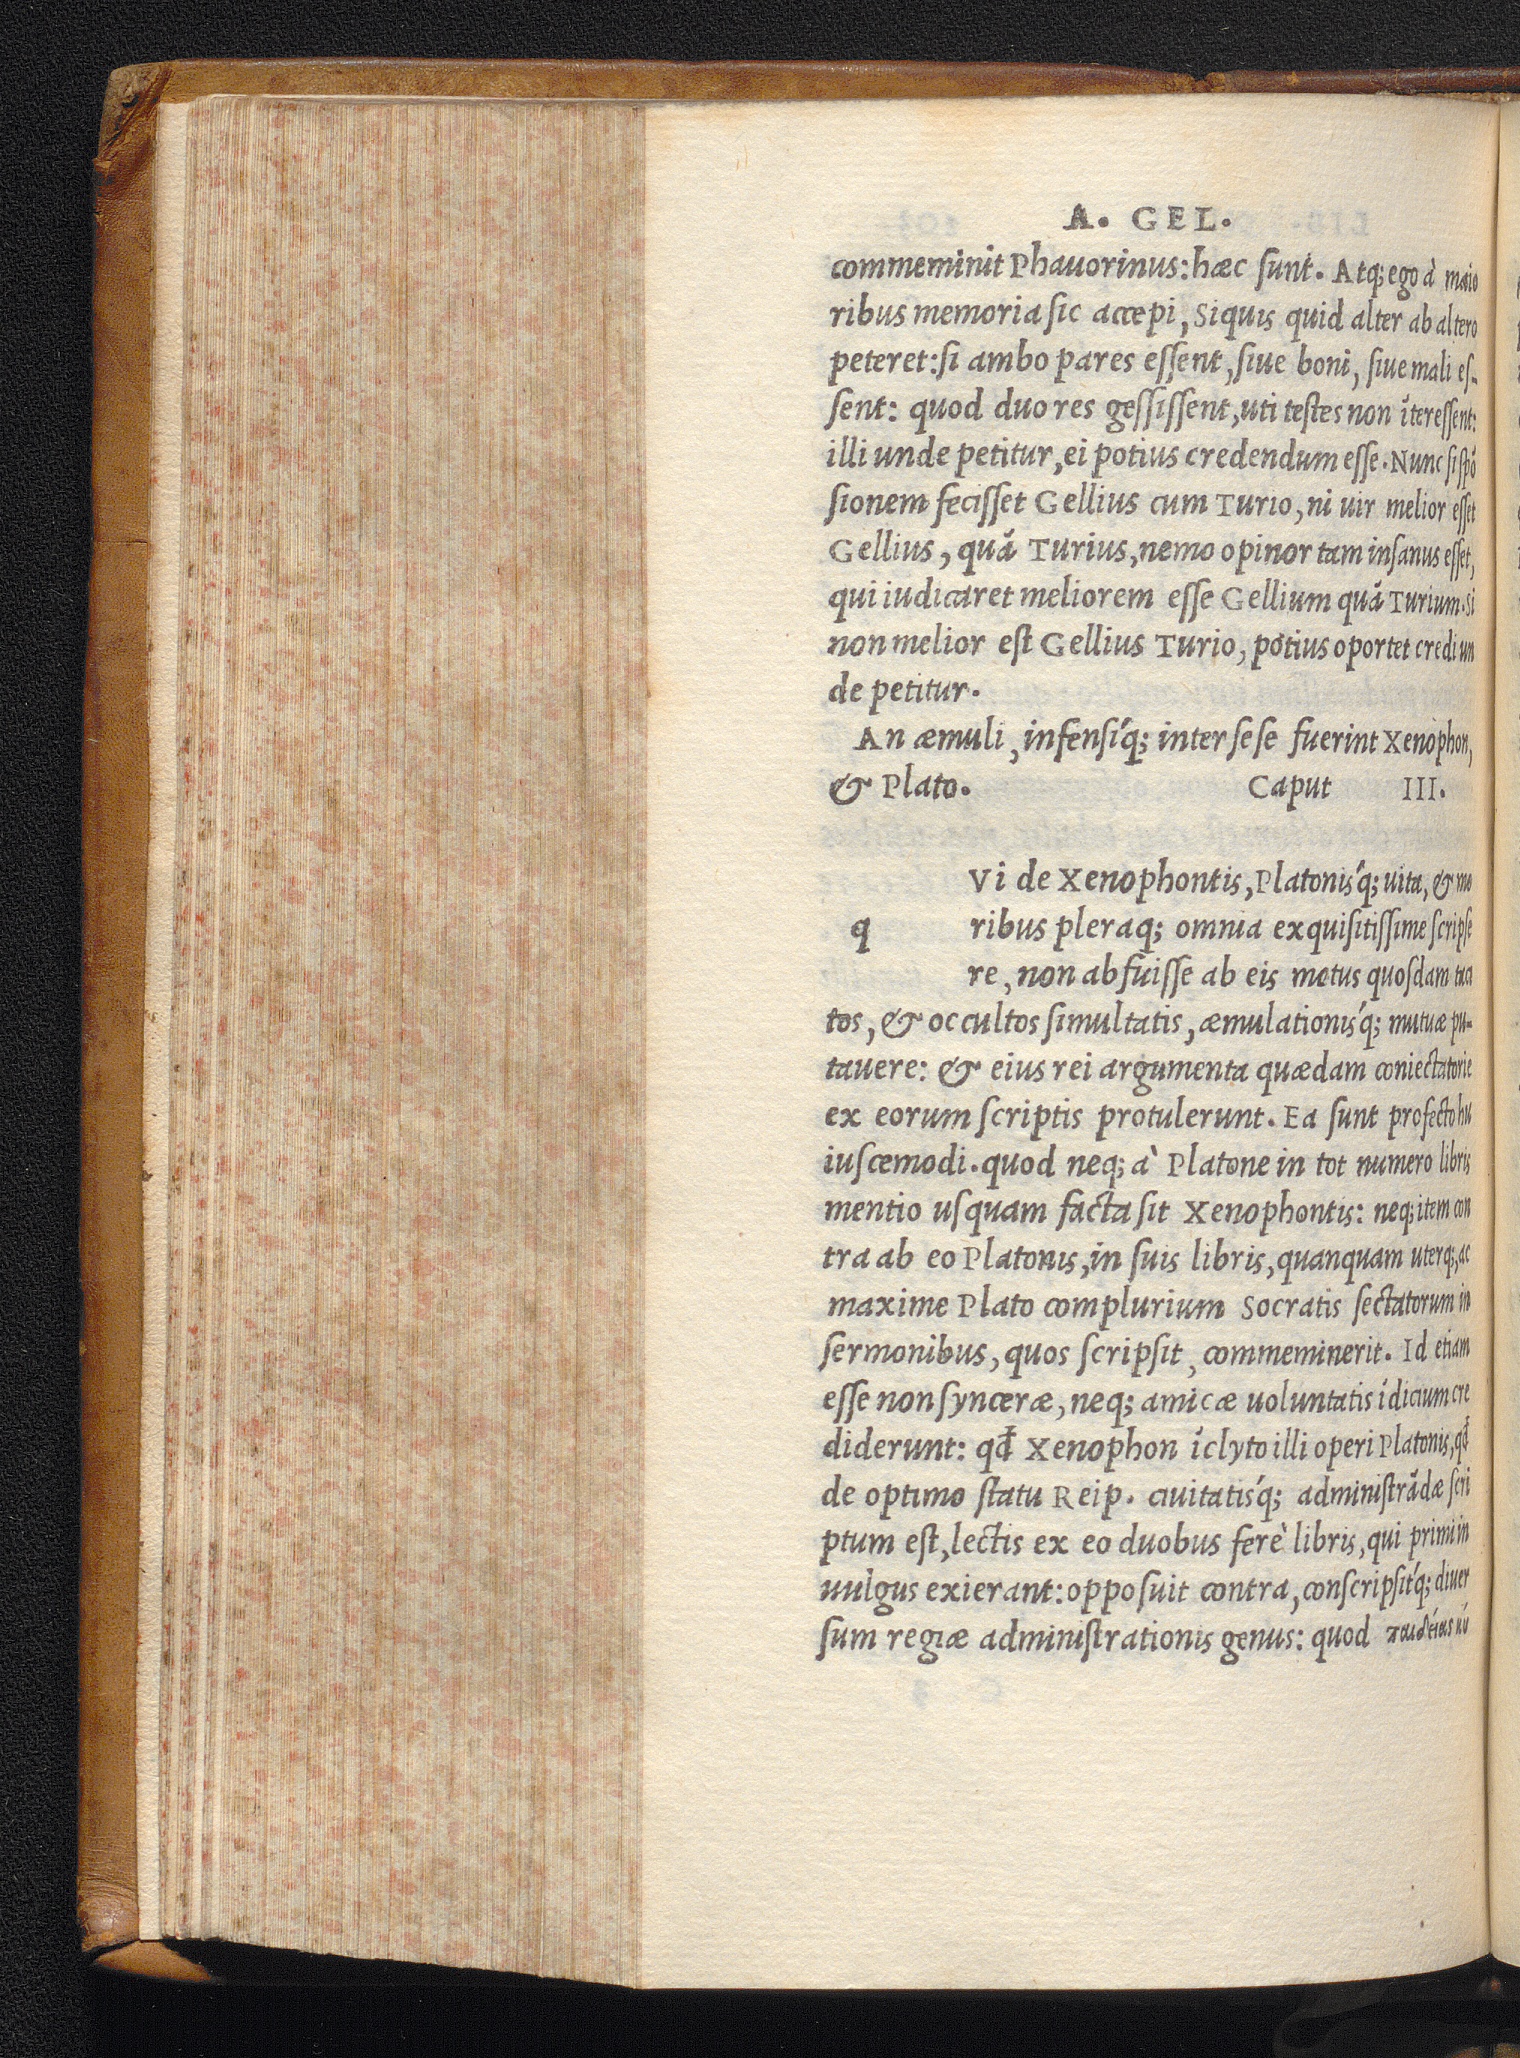 A. GEL.
commeminit Phauorinus: hæc ſunt. Atq; ego à maio
ribus memoria ſic accepi, Siquis quid alter ab altero
peteret: ſi ambo pares eſſent, ſiue boni, ſiue mali eſ-
ſent: quod duo res geſſiſſent, uti teſtes non ītereſſent:
illi unde petitur, ei potius credendum eſſe. Nunc ſi ſpō
ſionem feciſſet Gellius cum Turio, ni uir melior eſſet
Gellius, quā Turius, nemo opinor tam inſanus eſſet,
qui iudicaret meliorem eſſe Gellium quā Turium. Si
non melior eſt Gellius Turio, potius oportet credi un
de petitur.
An æmuli, infenſiq́; inter ſeſe fuerint Xenophon,
& Plato. Caput III.
Vi de Xenophontis, Platonisq́; uita, & mo
q ribus pleraq; omnia exquiſitiſſime ſcripſe
re, non abfuiſſe ab eis motus quoſdam taci
tos, & occultos ſimultatis, æmulationisq́; mutuæ pu-
tauere: & eius rei argumenta quædam coniectatorie
ex eorum ſcriptis protulerunt. Ea ſunt profecto hu
iuſcemodi. quod neq; à Platone in tot numero libris
mentio uſquam facta ſit Xenophontis: neq; item con
tra ab eo Platonis, in ſuis libris, quanquam uterq;, ac
maxime Plato complurium Socratis ſectatorum in
ſermonibus, quos ſcripſit, commeminerit. Id etiam
eſſe non ſynceræ, neq; amicæ uoluntatis īdicium cre
diderunt: qđ Xenophon īclyto illi operi Platonis, qđ
de optimo ſtatu Reip. ciuitatisq́; adminiſtrādæ ſcri
ptum eſt, lectis ex eo duobus ferè libris, qui primi in
uulgus exierant: oppoſuit contra, conſcripſitq́; diuer
ſum regiæ adminiſtrationis genus: quod παιδείας κύ